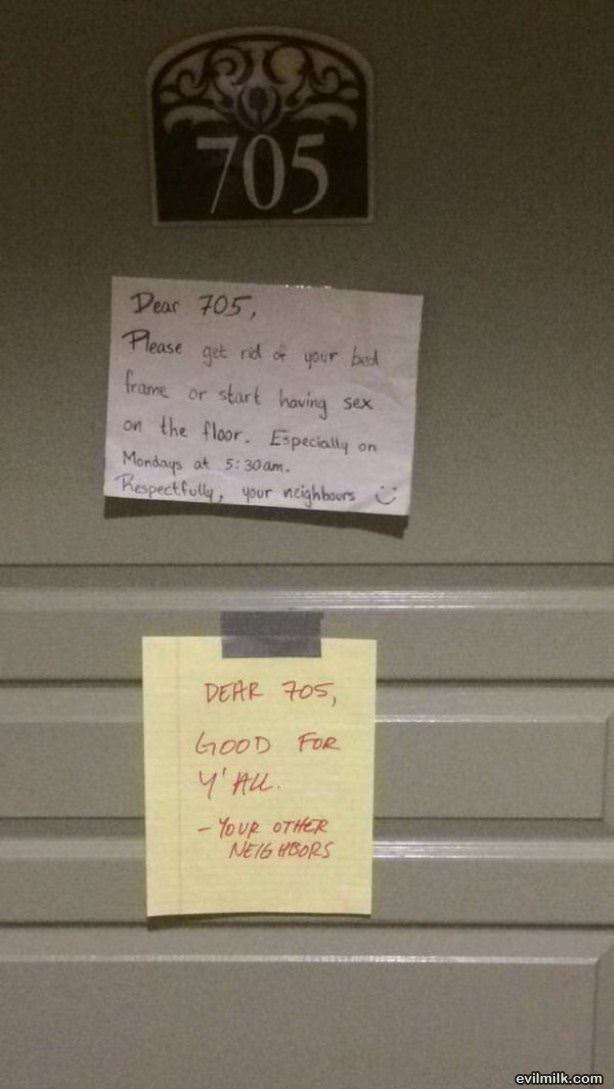 705
Dear 705,
Please get rid of your bed
frame or start having sex
on the floor. Especially on
Mondays at 5:30am.
Respectfully, your neighbours
DEAR 705,
GOOD FOR
Y'ALL.
- YOUR OTHER
NEIGHBORS
evilmilk.com